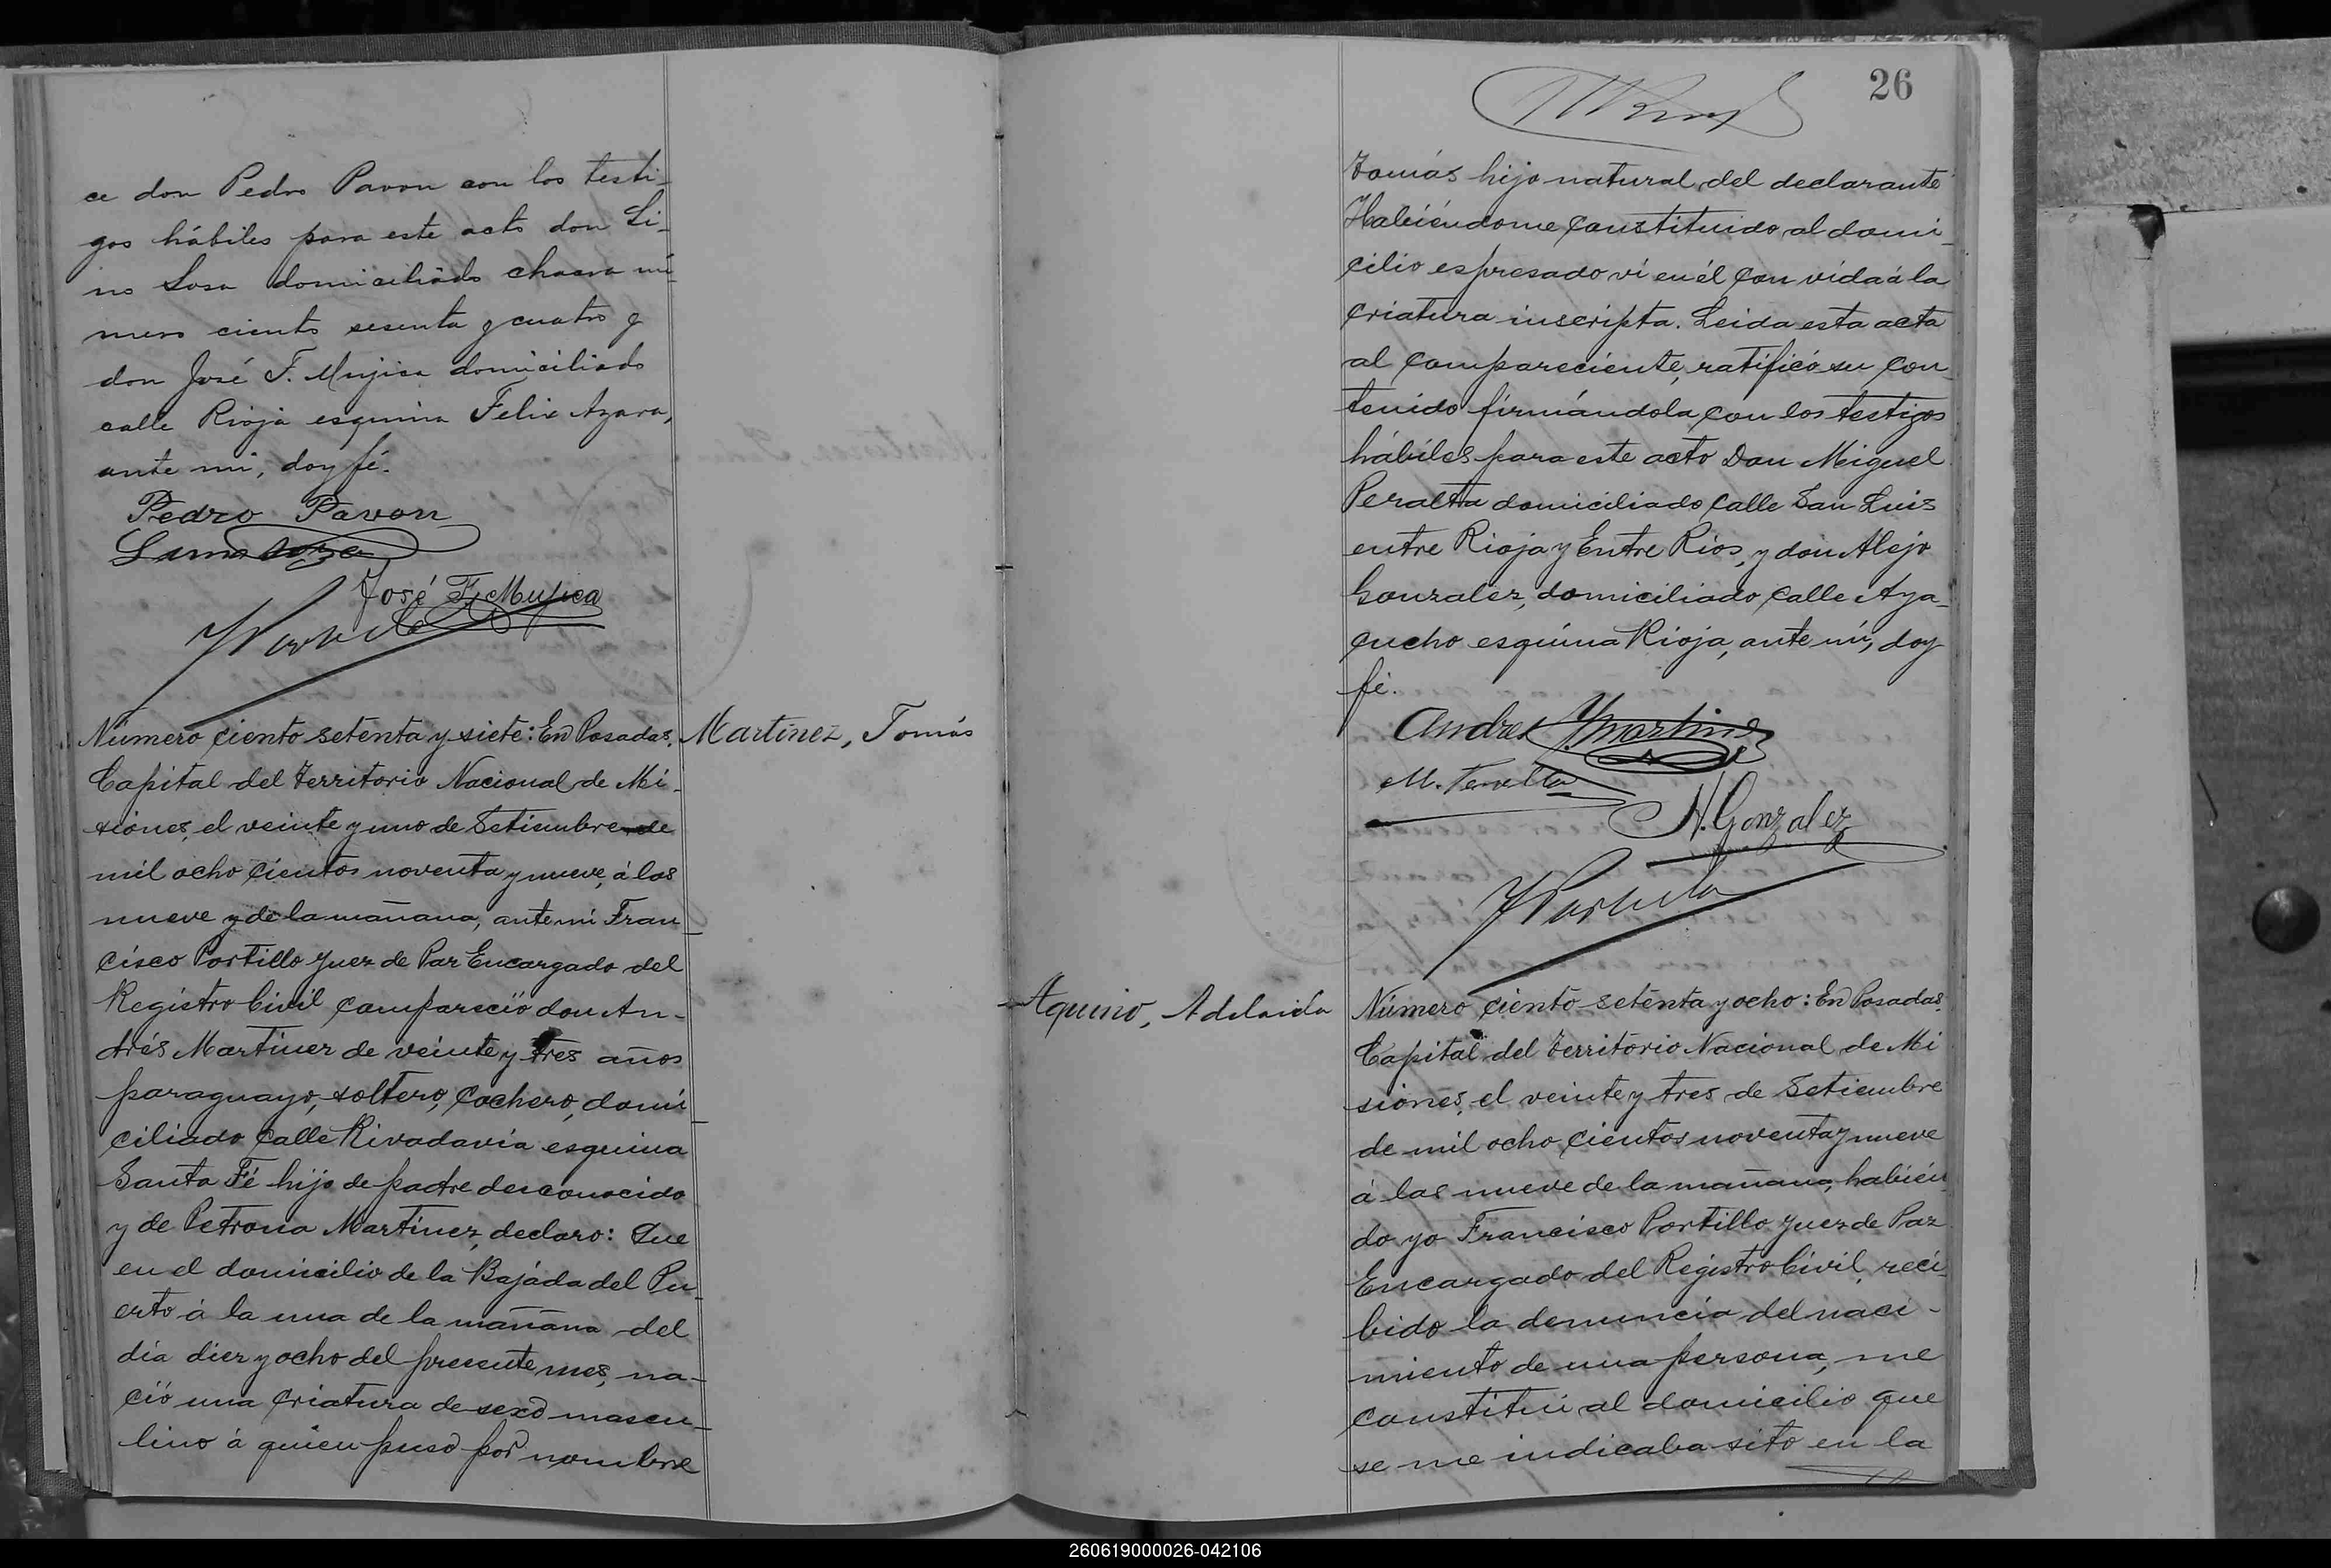 ce don Pedro Pavon con los testi-
gos hábiles para este acto don Li-
no Sosa domiciliado chacra nú-
mero ciento sesenta y cuatro y
don José F. Mujica domiciliado
calle Rioja esquina Felix Azara,
ante mi, doy fé.
Pedro Pavon
Lino Sosa
José F. Mujica
Número ciento setenta y siete: En Posadas,
Capital del Territorio Nacional de Mi-
siones, el veinte y uno de Setiembre de
mil ocho cientos noventa y nueve, á las
nueve y de la mañana, ante mi Fran-
cisco Portillo Juez de Paz Encargado del
Registro Civil compareció don An-
drés Martinez de veinte y tres años
paraguayo, soltero, cochero, domi-
ciliado calle Rivadavia esquina
Santa Fé hijo de padre desconocido
y de Petrona Martinez, declaro: Que
en el domicilio de la Bajada del Pu-
erto á la una de la mañana del
dia diez y ocho del presente mes, na-
ció una criatura de sexo mascu-
lino á quien puso por nombre
Martinez, Tomás
26
Tomás hijo natural del declarante
Habiéndome constituido al domi-
cilio espresado ví en él con vida á la
criatura inscripta. Leida esta acta
al compareciente, ratificó su con-
tenido firmándola con los testigos
hábiles para este acto Don Miguel
Peralta domiciliado calle San Luis
entre Rioja y Entre Rios, y don Alejo
Gonzalez, domiciliado calle Aya-
cucho esquina Rioja, ante mi, doy
fé.
Andres Martinez
N. Gonzalez
Aquino, Adelaida
Número ciento setenta y ocho: En Posadas,
Capital del Territorio Nacional de Mi
siones, el veinte y tres de Setiembre
de mil ocho cientos noventa y nueve
á las nueve de la mañana, habien-
do yo Francisco Portillo Juez de Paz
Encargado del Registro Civil, reci-
bido la denuncia del naci-
miento de una persona, me
constitui al domicilio que
se me indicaba sito en la
260619000026-042106